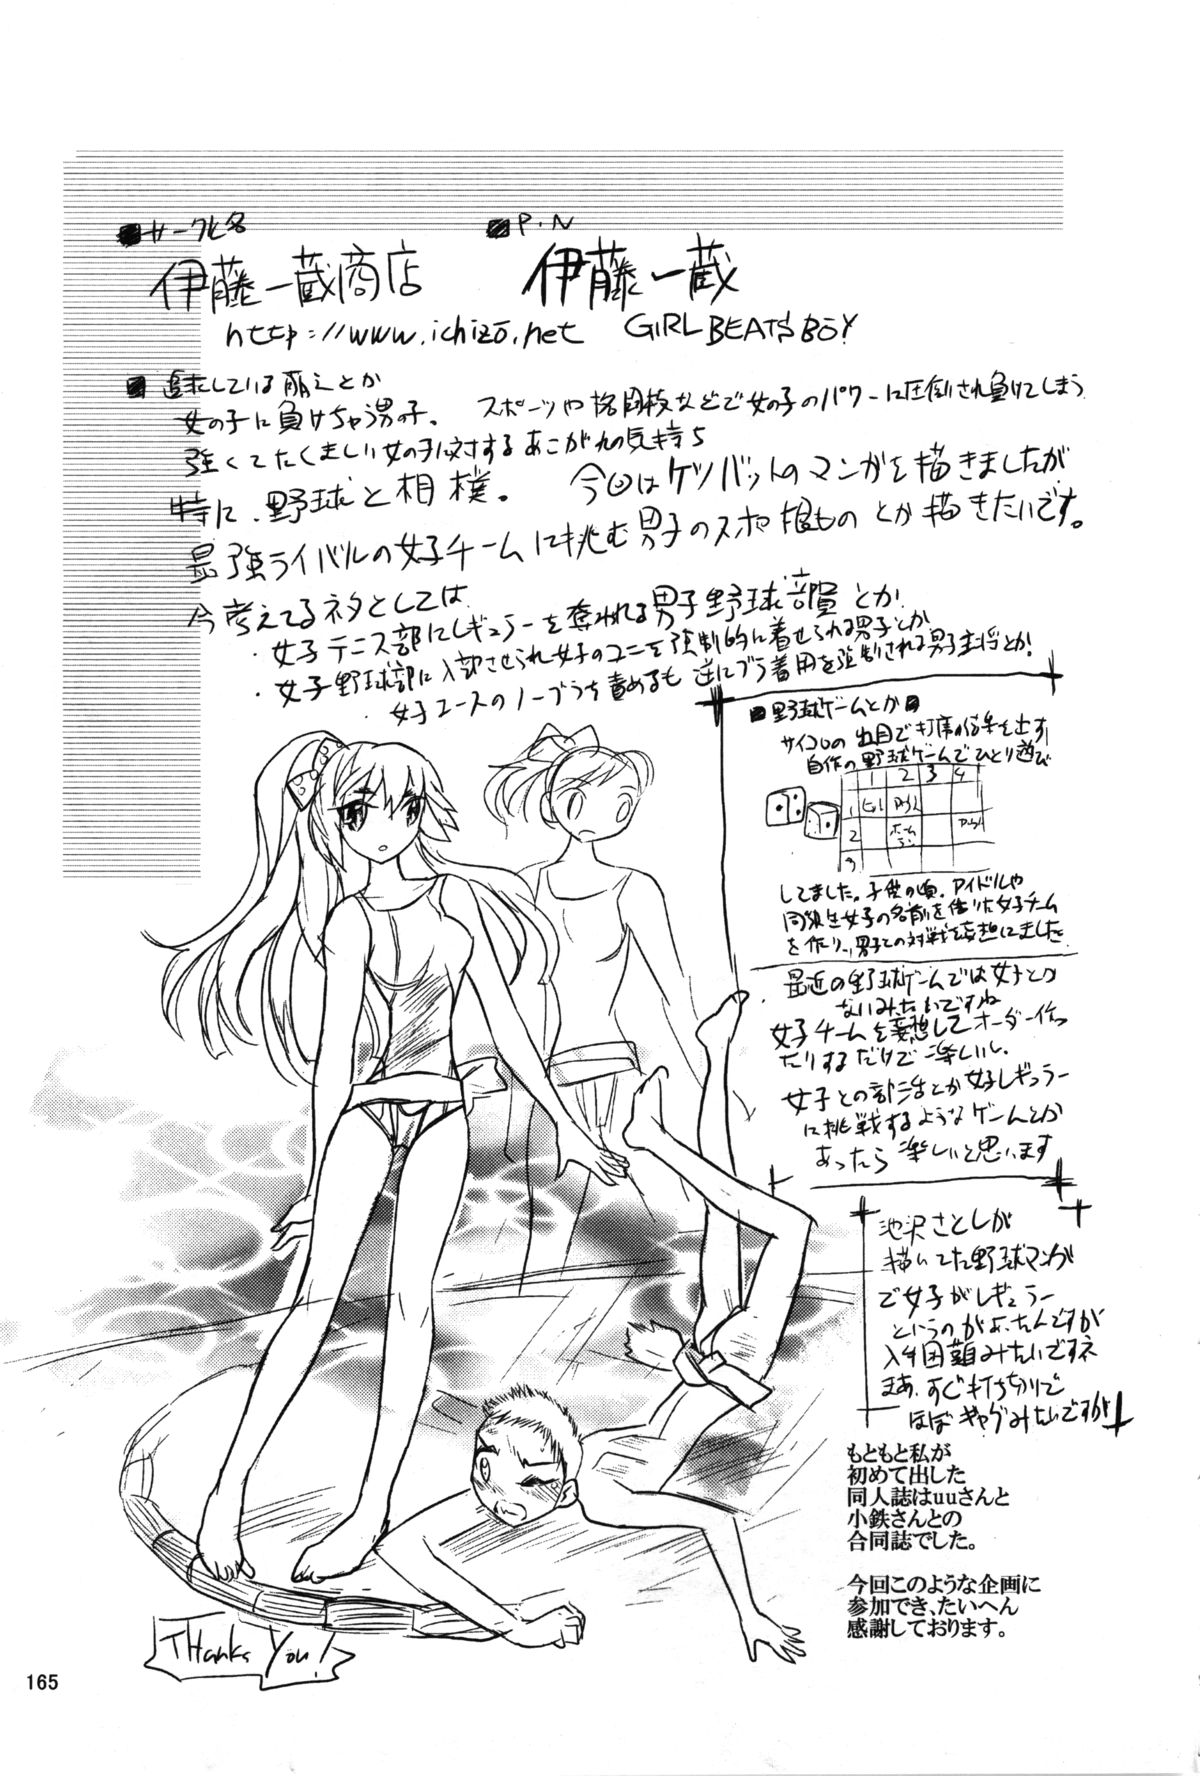 ■サークル名
■P.N
伊藤一蔵商店
伊藤一蔵
http://www.ichizo.net GIRL BEATS BOY
■追求している萌えとか
女の子に負けちゃう男の子。スポーツや格闘技などで女の子のパワーに圧倒され負けてしまう
強くてたくましい女の子に対するあこがれの気持ち
特に、野球と相撲。 今回はケツバットのマンガを描きましたが
最強ライバルの女子チームに挑む男子のスポ根ものとか描きたいです。
今考えてるネタとしては
・女子テニス部にレギュラーを奪われる男子野球部員とか
・女子野球部に入部させられ女子のユニを強制的に着せられる男子とか
・女子ユースのノーブラを責めるも逆にブラ着用を強制される男子主将とか!
■野球ゲームとか■
サイコロの出目で打席の結果を出す
自作の野球ゲームでひとり遊び
1 2 3 4
1
2 ホームラン
3
してました。子供の頃、アイドルや
同級生女子の名前を借りた女子チーム
を作り、男子との対戦を妄想しました
最近の野球ゲームでは女子とか
ないみたいですね
女子チームを妄想してオーダー作っ
たりするだけで楽しいし、
女子との部活とか女子レギュラー
に挑戦するようなゲームとか
あったら楽しいと思います
池沢さとしが
描いてた野球マンガ
で女子がレギュラー
というのがよかったんですが
入手困難みたいですネ
まあ、すぐ打ち切りで
ほぼギャグみたいですが
もともと私が
初めて出した
同人誌はuuさんと
小鉄さんとの
合同誌でした。
今回このような企画に
参加でき、たいへん
感謝しております。
THanks You!
165